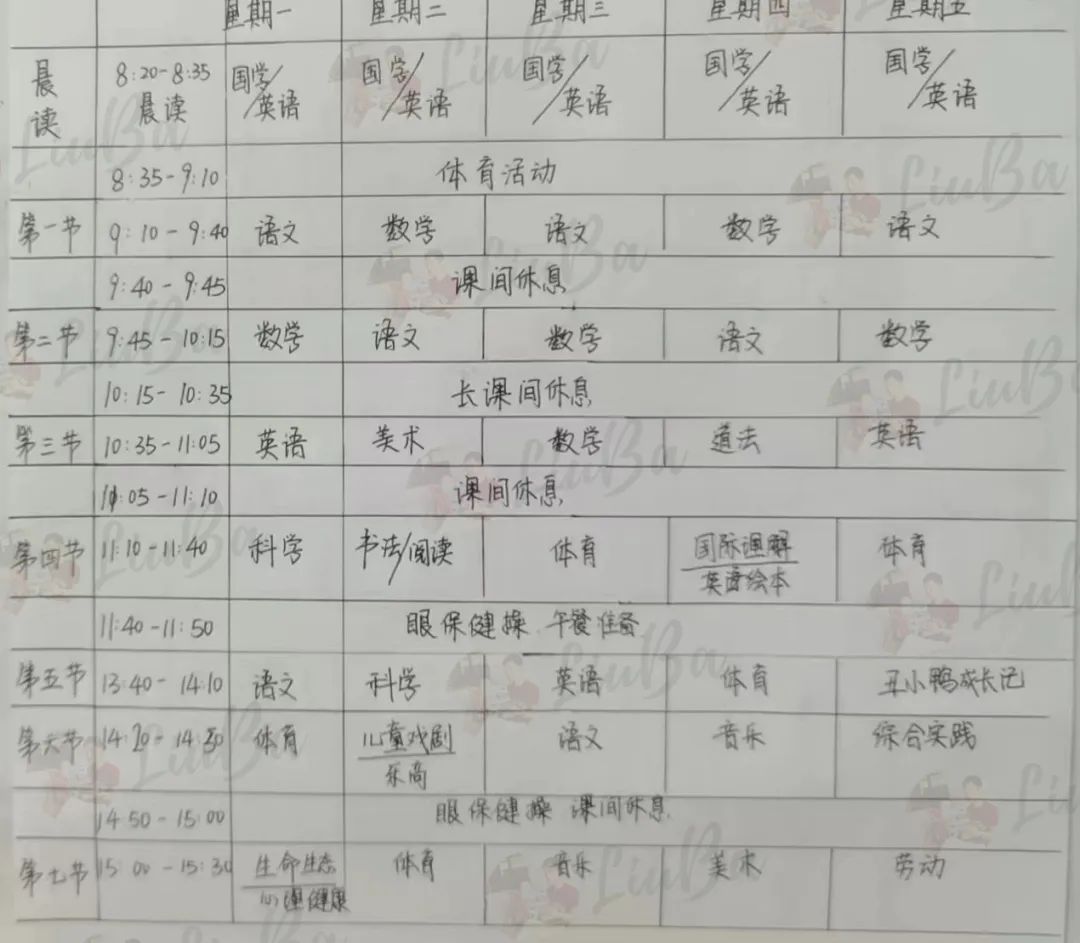 星期一 星期二 星期三 星期四 星期五
晨读 8:20-8:35 晨读 国学/英语 国学/英语 国学/英语 国学/英语 国学/英语
8:35-9:10 体育活动
第一节 9:10-9:40 语文 数学 语文 数学 语文
9:40-9:45 课间休息
第二节 9:45-10:15 数学 语文 数学 语文 数学
10:15-10:35 长课间休息
第三节 10:35-11:05 英语 美术 数学 道法 英语
11:05-11:10 课间休息
第四节 11:10-11:40 科学 书法/阅读 体育 国际理解/英语绘本 体育
11:40-11:50 眼保健操 午餐准备
第五节 13:40-14:10 语文 科学 英语 体育 丑小鸭成长记
第六节 14:20-14:50 体育 儿童戏剧/乐高 语文 音乐 综合实践
14:50-15:00 眼保健操 课间休息
第七节 15:00-15:30 生命生态/心理健康 体育 音乐 美术 劳动
LiuBa